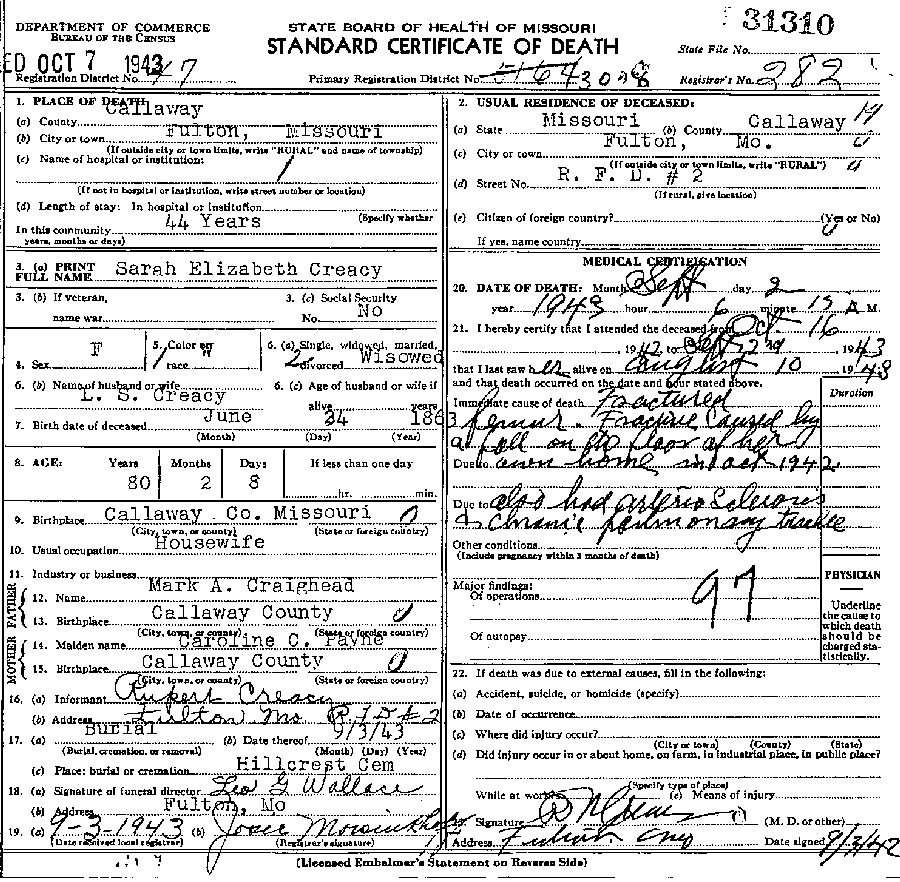 DEPARTMENT OF COMMERCE
BUREAU OF THE CENSUS
STATE BOARD OF HEALTH OF MISSOURI
STANDARD CERTIFICATE OF DEATH
31310
State File No.
ED OCT 7 1943
Registration District No. 47
Primary Registration District No. 3028
Registrar's No. 282
1. PLACE OF DEATH:
(a) County Callaway
(b) City or town Fulton, Missouri
(If outside city or town limits, write "RURAL" and name of township)
(c) Name of hospital or institution:
(If not in hospital or institution, write street number or location)
(d) Length of stay: In hospital or institution
(Specify whether
In this community 44 Years
years, months or days)
2. USUAL RESIDENCE OF DECEASED:
(a) State Missouri (b) County Callaway 14
(c) City or town Fulton, Mo. 0
(If outside city or town limits, write "RURAL")
(d) Street No. R. F. D. # 2
(If rural, give location)
(e) Citizen of foreign country? (Yes or No)
If yes, name country
3. (a) PRINT FULL NAME Sarah Elizabeth Creacy
3. (b) If veteran, name war
3. (c) Social Security No. No
4. Sex F
5. Color or race W
6. (a) Single, widowed, married, divorced Wisowed
6. (b) Name of husband or wife L. S. Creacy
6. (c) Age of husband or wife if alive years
7. Birth date of deceased June 24 1863
(Month) (Day) (Year)
8. AGE: Years Months Days If less than one day
80 2 8 hr. min.
9. Birthplace Callaway Co. Missouri 0
(City, town, or county) (State or foreign country)
10. Usual occupation Housewife
11. Industry or business
FATHER
12. Name Mark A. Craighead
13. Birthplace Callaway County 0
(City, town, or county) (State or foreign country)
MOTHER
14. Maiden name Caroline C. Payne
15. Birthplace Callaway County 0
(City, town, or county) (State or foreign country)
16. (a) Informant Rupert Creacy
(b) Address Fulton Mo R.F.D #2
17. (a) Burial (b) Date thereof 9/3/43
(Burial, cremation, or removal) (Month) (Day) (Year)
(c) Place: burial or cremation Hillcrest Cem
18. (a) Signature of funeral director Leo G Wallace
(b) Address Fulton, Mo
19. (a) 9-3-1943 (b) Josie
(Date received local registrar) (Registrar's signature)
MEDICAL CERTIFICATION
20. DATE OF DEATH: Month Sept day 2
year 1943 hour 6 minute 15 A M.
21. I hereby certify that I attended the deceased from Oct 16
1942 to Sept 2 1943
that I last saw her alive on August 10 1943
and that death occurred on the date and hour stated above.
Duration
Immediate cause of death Fractured
Femur. Fracture caused by
a fall on the floor of her
Due to own home in Oct 1942
Due to also had arterio Sclerosis
& chronic pulmonary
Other conditions
(Include pregnancy within 3 months of death)
Major findings:
Of operations
97
Of autopsy
PHYSICIAN
Underline the cause to which death should be charged statistically.
22. If death was due to external causes, fill in the following:
(a) Accident, suicide, or homicide (specify)
(b) Date of occurrence
(c) Where did injury occur?
(City or town) (County) (State)
(d) Did injury occur in or about home, on farm, in industrial place, in public place?
(Specify type of place)
While at work? (e) Means of injury
Signature (M. D. or other)
Address Fulton Mo Date signed 9/3/42
(Licensed Embalmer's Statement on Reverse Side)